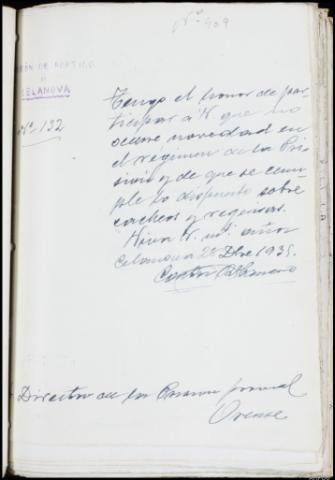 Nº 409
CELANOVA
Nº 132
Tengo el honor de par
ticipar a V. que no
ocurre novedad en
el régimen de la Pri
sión y de que se cum
ple lo dispuesto sobre
cacheos y requisas.
Viva V. m. años
Celanova 2 Dbre 1935.
Director de la Prisión provincial
Orense